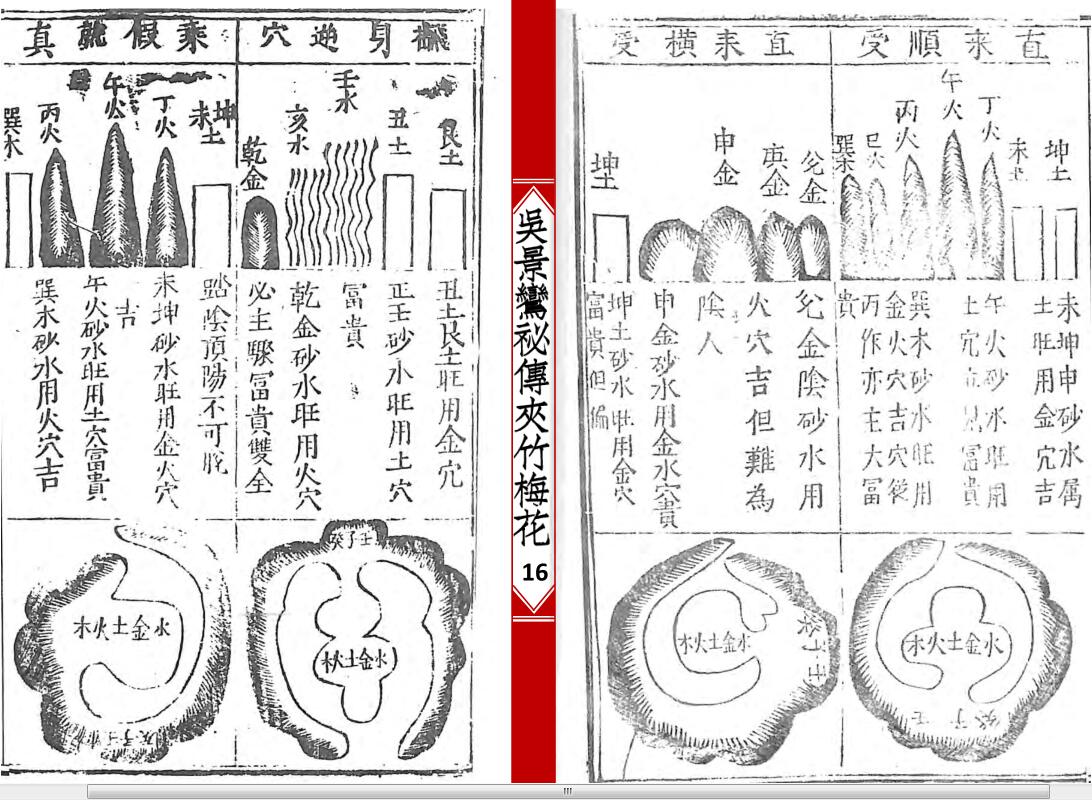 直來順受
坤土
未土
丁火
午火
丙火
巳火
巽木
未坤申砂水属
土旺用金穴吉
午火砂水旺用
土穴
富貴
巽木砂水旺用
金火穴吉穴後
丙作亦主大富
貴
水金土火木
癸子壬
直耒橫受
兊金
庚金
申金
坤土
兊金陰砂水用
火穴吉但難為
陰人
申金砂水用金水穴貴
坤土砂水旺用金穴
富貴但偏
水金土火木
癸子壬
吳景鸞祕傳夾竹梅花
16
翻身逆穴
艮土
丑土
壬水
亥水
乾金
丑土艮土旺用金穴
正壬砂水旺用土穴
富貴
乾金砂水旺用火穴
必主驟富貴雙全
癸子壬
水金土火木
乘假就真
坤土
未土
丁火
午火
丙火
巽木
踏陰頂陽不可脫
未坤砂水旺用金火穴
吉
午火砂水旺用土穴富貴
巽木砂水用火穴吉
水金土火木
癸子壬